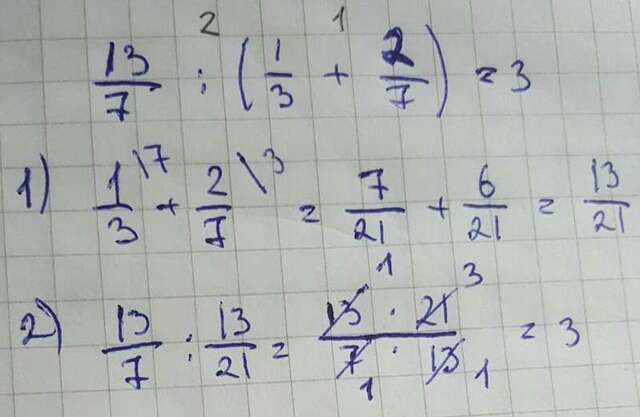 2 1
13/7 : (1/3 + 2/7) = 3
1) 1/3 \7 + 2/7 \3 = 7/21 + 6/21 = 13/21
2) 13/7 : 13/21 = 13 1 · 21 3 / 7 1 · 13 1 = 3